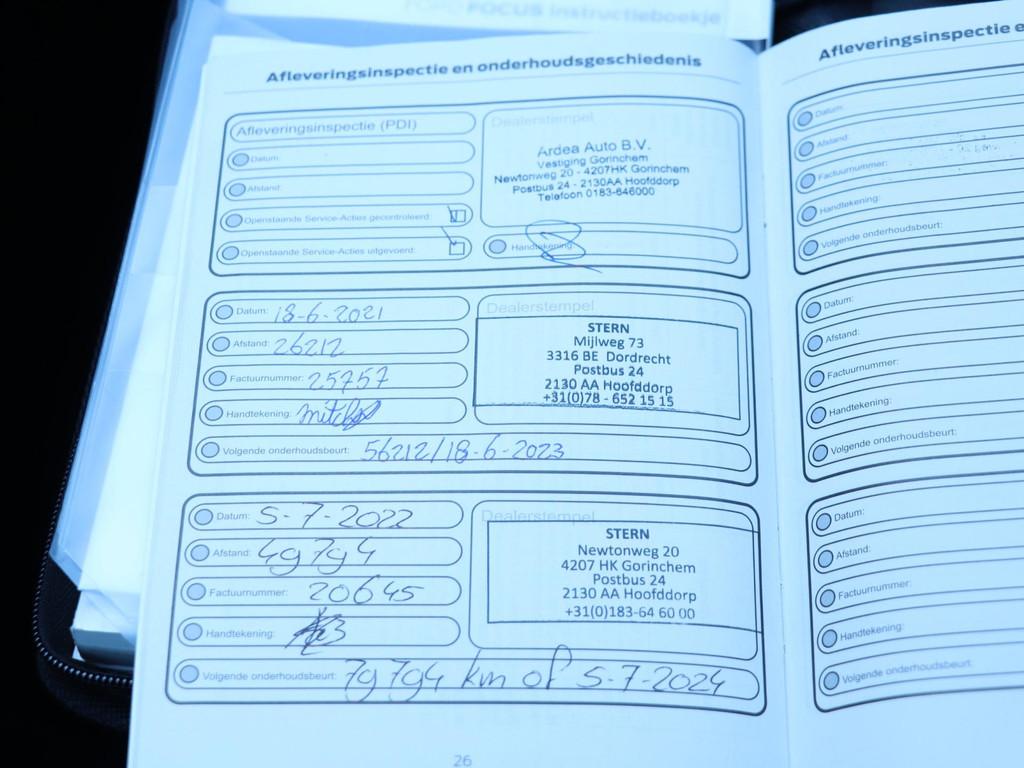 FOCUS instructieboekje
Afleveringsinspectie en onderhoudsgeschiedenis
Afleveringsinspectie (PDI)
Datum:
Afstand:
Openstaande Service-Acties gecontroleerd:
Openstaande Service-Acties uitgevoerd:
Dealerstempel
Ardea Auto B.V.
Vestiging Gorinchem
Newtonweg 20 - 4207HK Gorinchem
Postbus 24 - 2130AA Hoofddorp
Telefoon 0183-646000
Handtekening:
Datum: 18-6-2021
Afstand: 26212
Factuurnummer: 25757
Handtekening:
Volgende onderhoudsbeurt: 56212/18-6-2023
Dealerstempel
STERN
Mijlweg 73
3316 BE Dordrecht
Postbus 24
2130 AA Hoofddorp
+31(0)78 - 652 15 15
Datum: 5-7-2022
Afstand: 49794
Factuurnummer: 20645
Handtekening:
Volgende onderhoudsbeurt: 79794 km of 5-7-2024
Dealerstempel
STERN
Newtonweg 20
4207 HK Gorinchem
Postbus 24
2130 AA Hoofddorp
+31(0)183-64 60 00
26
Afleveringsinspectie e
Datum:
Afstand:
Factuurnummer:
Handtekening:
Volgende onderhoudsbeurt:
Datum:
Afstand:
Factuurnummer:
Handtekening:
Volgende onderhoudsbeurt:
Datum:
Afstand:
Factuurnummer:
Handtekening:
Volgende onderhoudsbeurt: